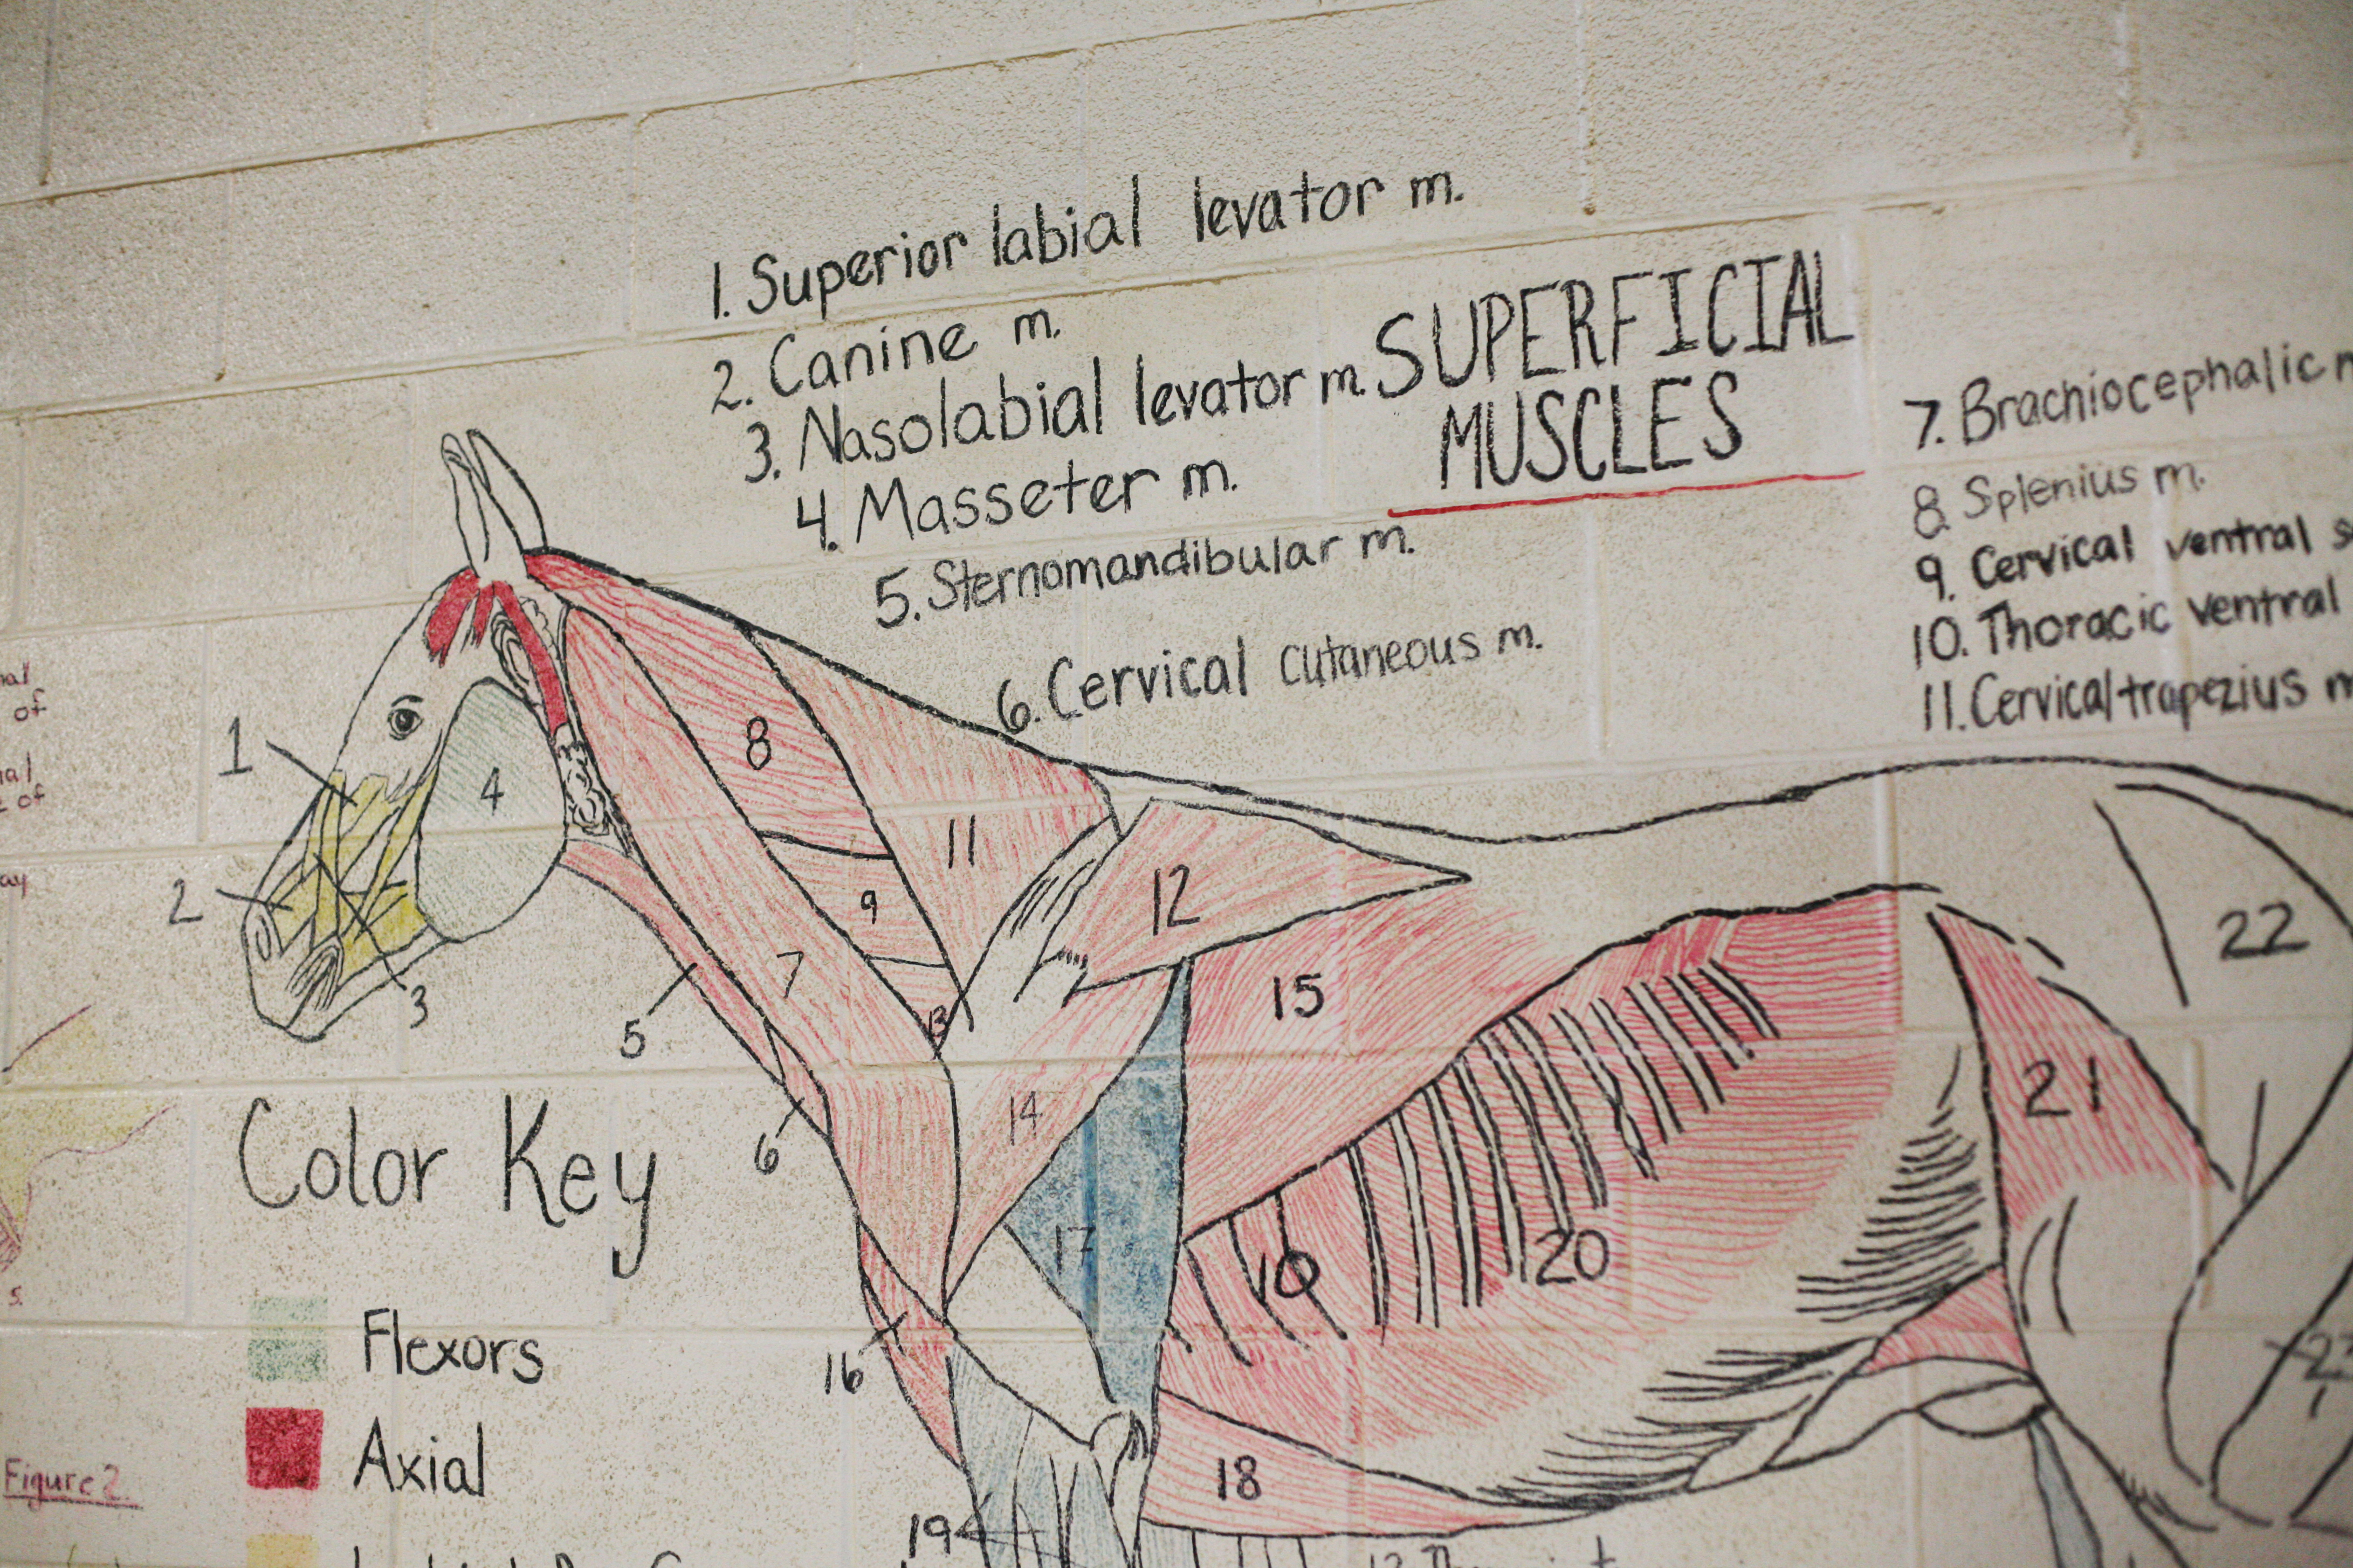 1. Superior labial levator m.
2. Canine m.
3. Nasolabial levator m.
4. Masseter m.
5. Sternomandibular m.
6. Cervical cutaneous m.
SUPERFICIAL
MUSCLES
7. Brachiocephalic
8. Splenius m.
9. Cervical ventral
10. Thoracic ventral
11. Cervical trapezius
of
of
1
2
3
4
5
6
7
8
9
11
12
13
14
15
16
17
18
19
19
20
21
22
23
Color Key
Flexors
Axial
Figure 2.
5.